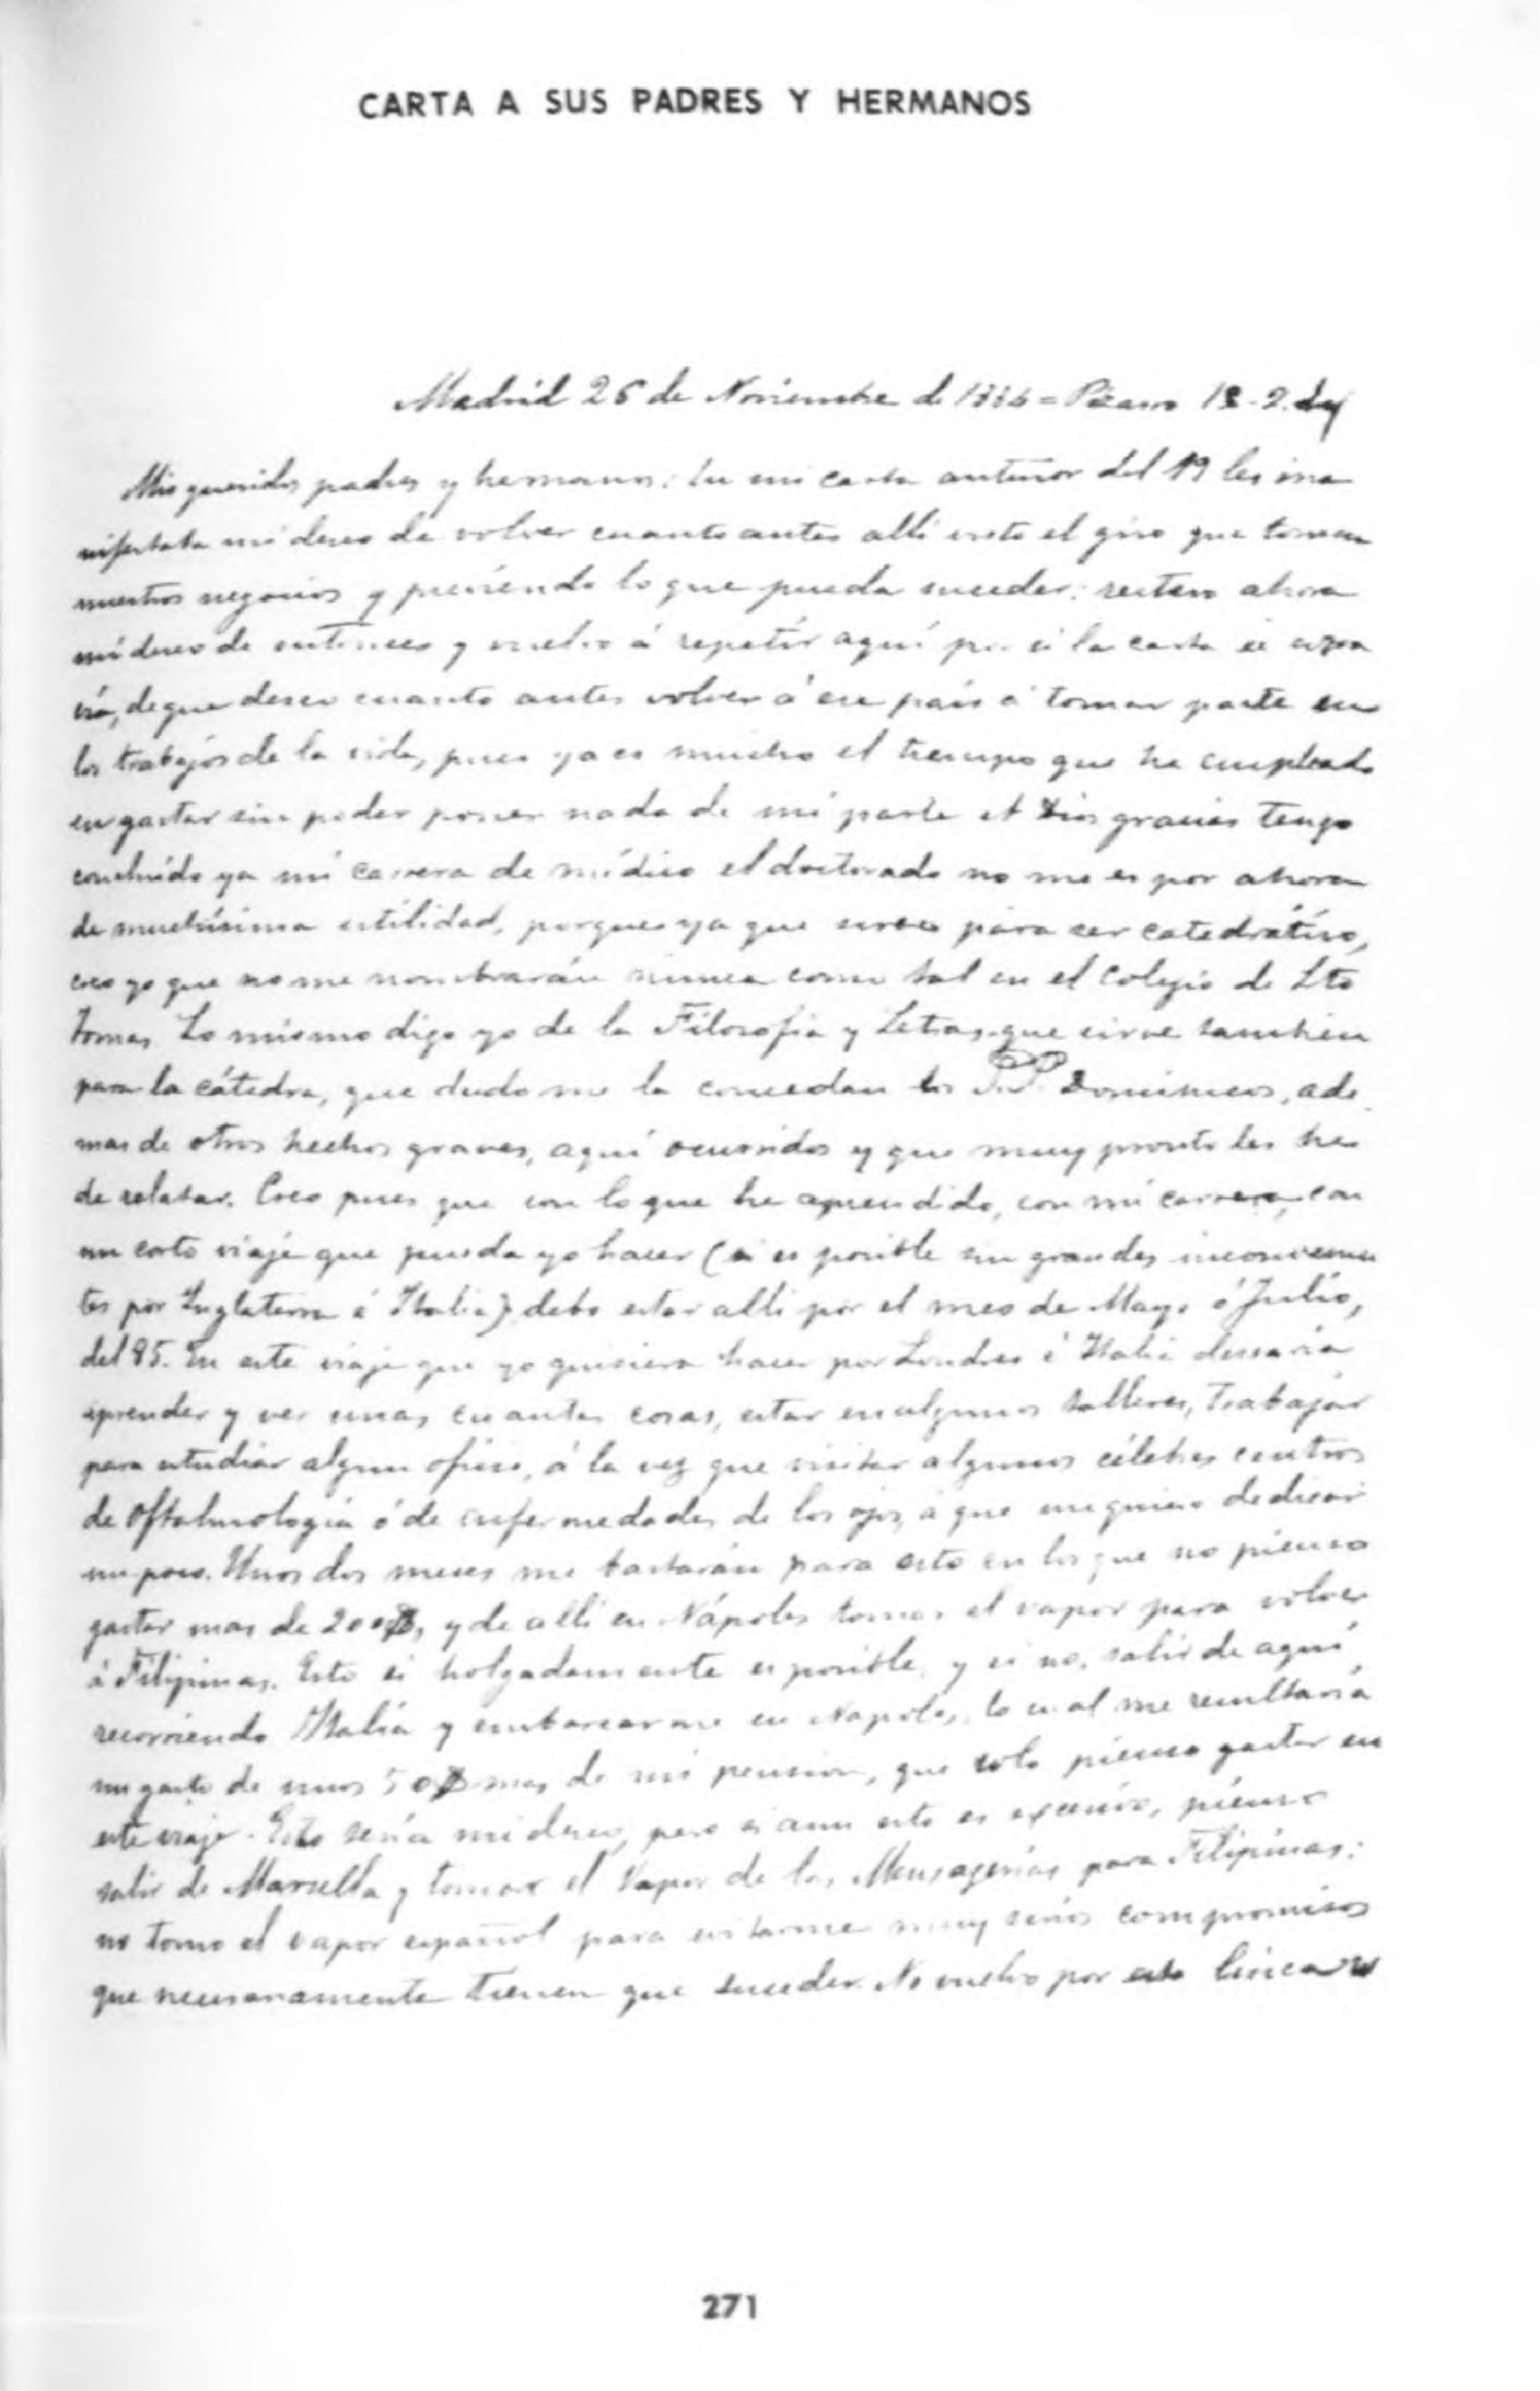 CARTA A SUS PADRES Y HERMANOS
Madrid 26 de Noviembre de 1884 = Pizarro 13-2. dq
Mis queridos padres y hermanos: En mi carta anterior del 19 les ma
nifestaba mi deseo de volver cuanto antes allí visto el giro que toman
nuestros negocios y previendo lo que pueda suceder: reitero ahora
mi deseo de entonces y vuelvo á repetir aquí por si la carta se
de que deseo cuanto antes volver á ese país á tomar parte en
los trabajos de la vida, pues ya es mucho el tiempo que he empleado
en gastar sin poder poner nada de mi parte. A Dios gracias tengo
concluido ya mi carrera de médico el doctorado no me es por ahora
de muchísima utilidad, porque ya que sirve para ser catedrático,
creo yo que no me nombrarán nunca como tal en el Colegio de Sto
Tomas. Lo mismo digo yo de la Filosofía y Letras que sirve tambien
para la cátedra, que dudo me la concedan los PP. Dominicos, ade
mas de otros hechos graves, aquí ocurridos y que muy pronto les he
de relatar. Creo pues que con lo que he aprendido, con mi carrera, con
un corto viaje que pueda yo hacer (si es posible sin grandes inconvenien
tes por Inglaterra é Italia) debo estar allí por el mes de Mayo ó Julio,
del 85. En este viaje que yo quisiera hacer por Londres é Italia desearía
aprender y ver unas cuantas cosas, estar en algunos talleres, trabajar
para estudiar algun oficio, á la vez que visitar algunos célebres centros
de Oftalmología ó de enfermedades de los ojos, á que me quiero dedicar
un poco. Unos dos meses me bastarán para esto en los que no pienso
gastar mas de 200$, y de allí en Nápoles tomar el vapor para volver
á Filipinas. Esto si holgadamente es posible, y si no, salir de aquí
recorriendo Italia y embarcarme en Napoles, lo cual me resultaría
un gasto de unos 50$ mas de mi pension, que solo pienso gastar en
este viaje. Esto sería mi deseo, pero si aun esto es excesivo, pienso
salir de Marsella y tomar el Vapor de las Mensagerías para Filipinas:
no tomo el vapor español para evitarme muy serios compromisos
que necesariamente tienen que suceder. No vuelvo por esta línea
271